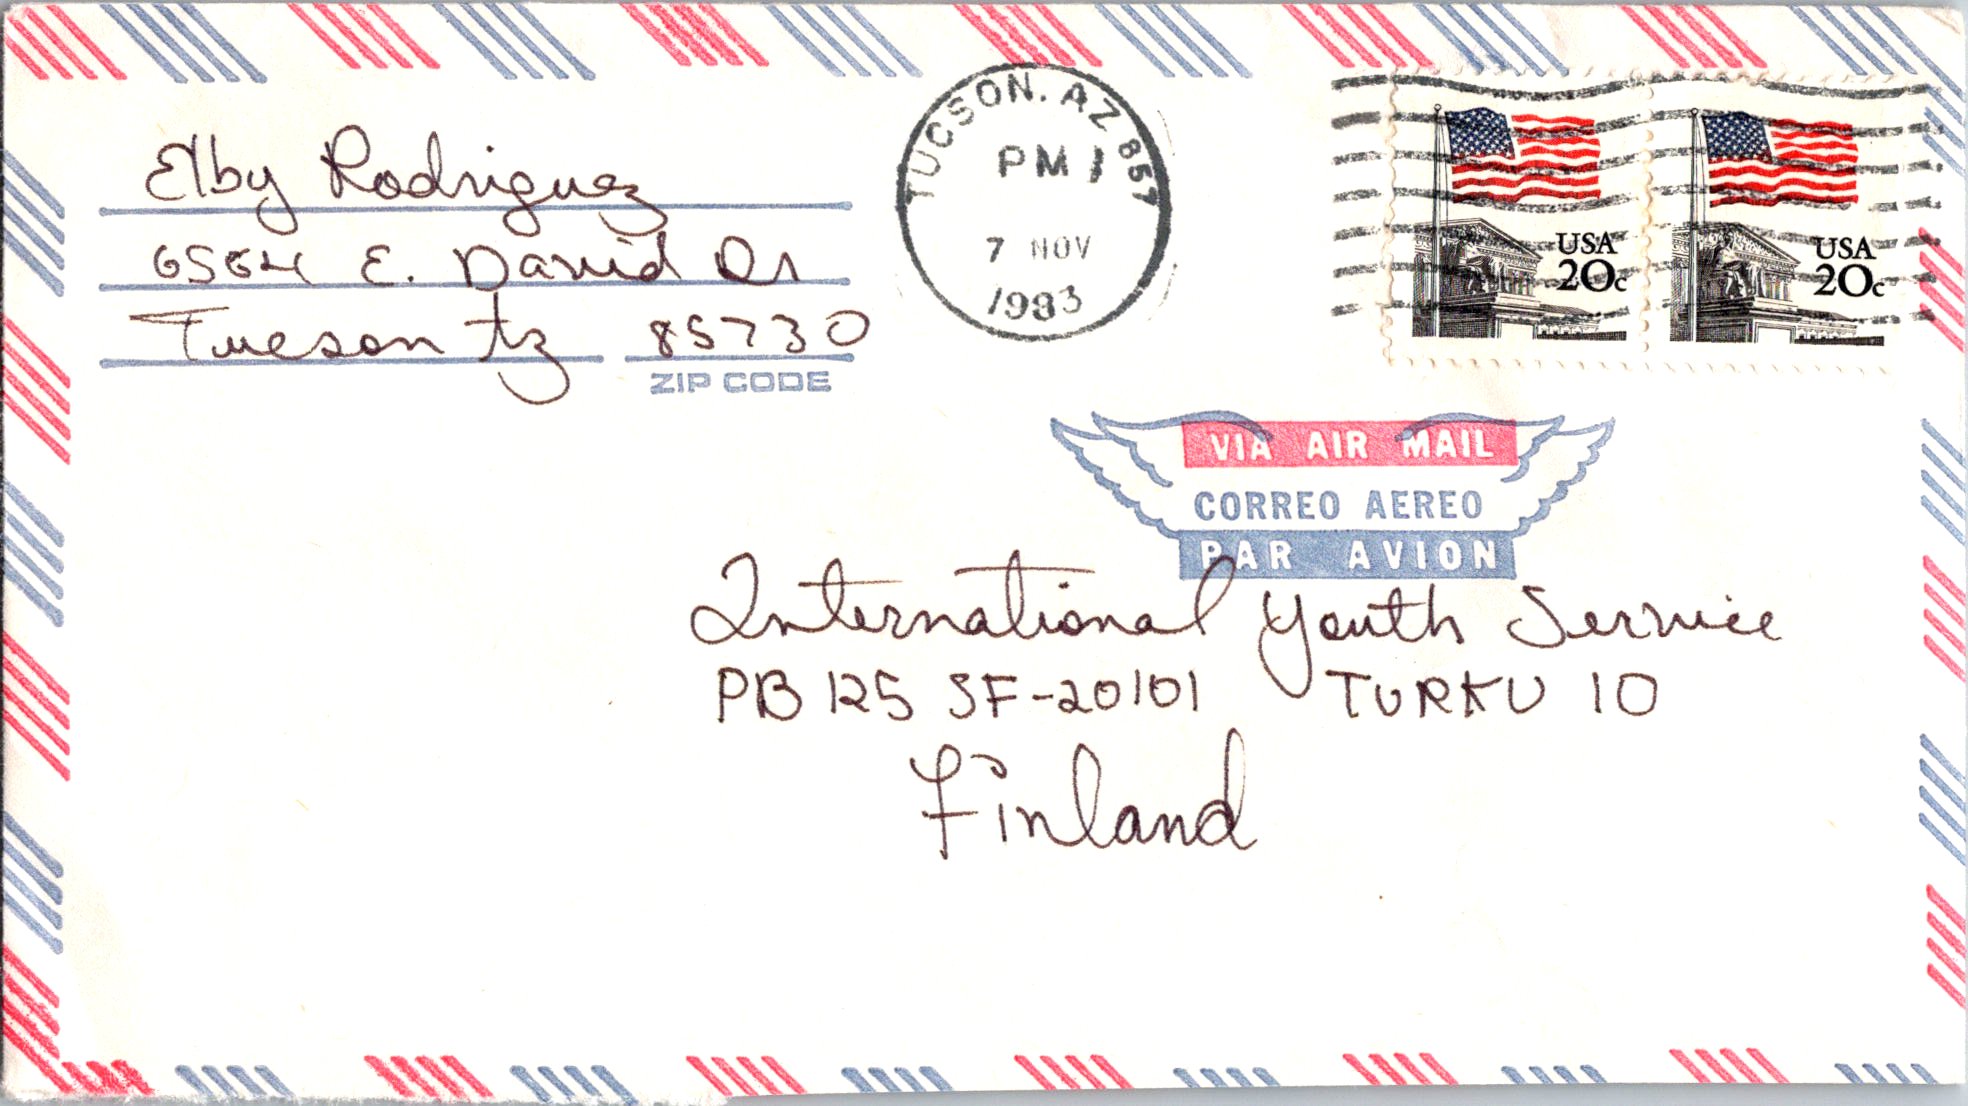 Elby Rodriguez
6564 E. David Dr
Tucson Az 85730
ZIP CODE
TUCSON. AZ 857
PM
7 NOV
1983
USA
20c
USA
20c
VIA AIR MAIL
CORREO AEREO
PAR AVION
International Youth Service
PB 125 SF-20101 TURKU 10
Finland